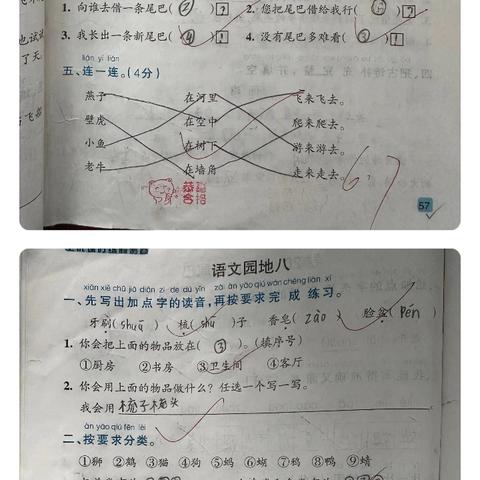 1. 向谁去借一条尾巴(②)? 2. 您把尾巴借给我行(⑥)?
3. 我长出一条新尾巴(④)! 4. 没有尾巴多难看(③)
lián yì lián
五、连一连。(4分)
燕子 在河里 飞来飞去。
壁虎 在空中 爬来爬去。
小鱼 在树下 游来游去。
老牛 在墙角 走来走去。
57
语文园地八
xiān xiě chū jiā diǎn zì de dú yīn zài àn yāo qiú wán chéng liàn xí
一、先写出加点字的读音,再按要求完成练习。
牙刷(shuā) 梳(shū)子 香皂(zào) 脸盆(pén)
1. 你会把上面的物品放在(③)。(填序号)
①厨房 ②书房 ③卫生间 ④客厅
2. 你会用上面的物品做什么?任选一个写一写。
我会用梳子梳头
àn yāo qiú fēn lèi
二、按要求分类。
①狮 ②鹅 ③猫 ④狗 ⑤蚂 ⑥蝴 ⑦鸦 ⑧鸭 ⑨蜻